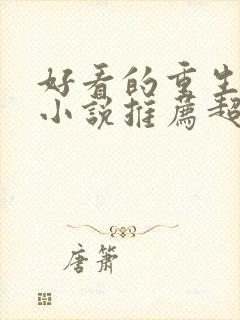 好看的重生
小说推荐超
唐箫